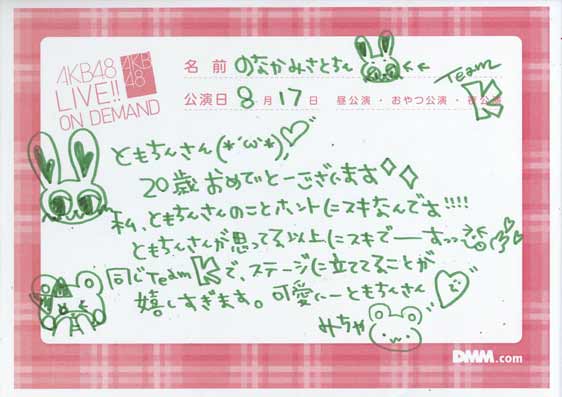 AKB48
LIVE!!
ON DEMAND
AKB
48
名前 のなかみさとちん
Team
K
公演日 8月17日 昼公演・おやつ公演・夜公演
ともちんさん(*´ω`*)
20歳おめでとーございます
私、ともちんさんのことホントにスキなんです!!!!
ともちんさんが思ってる以上にスキでーーすっっ
同じTeam Kで、ステージに立ててることが
嬉しすぎます。可愛いーともちんさん
みちゃ
DMM.com